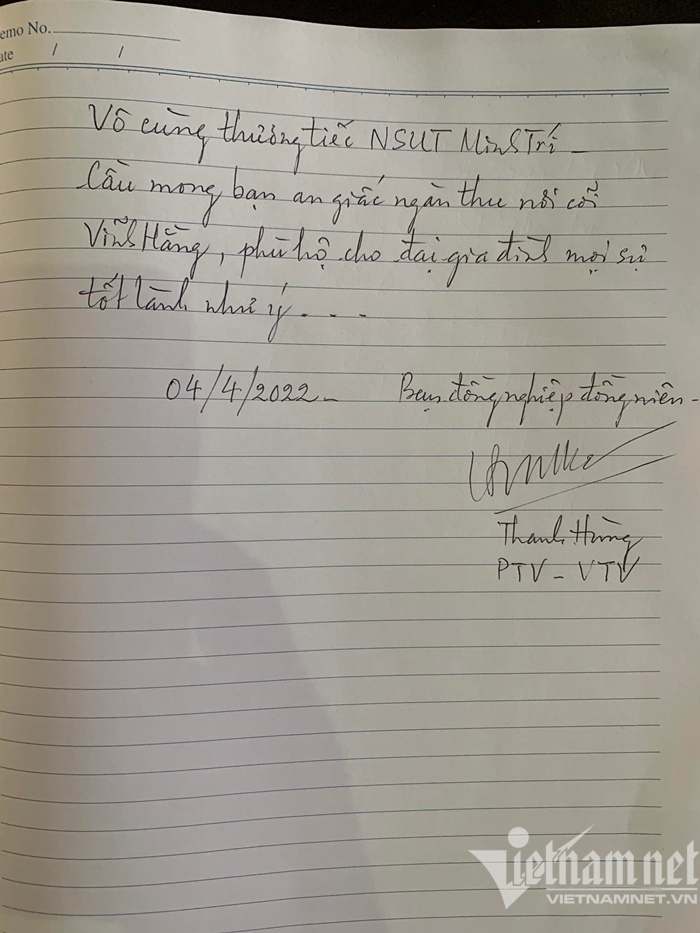 emo No.
ate / /
Vô cùng thương tiếc NSUT Minh Trí -
Cầu mong bạn an giấc ngàn thu nơi cõi
Vĩnh Hằng, phù hộ cho đại gia đình mọi sự
tốt lành như ý - - -
04/4/2022 - Bạn đồng nghiệp đồng niên -
Thanh Hùng
PTV - VTV
Vietnamnet
VIETNAMNET.VN